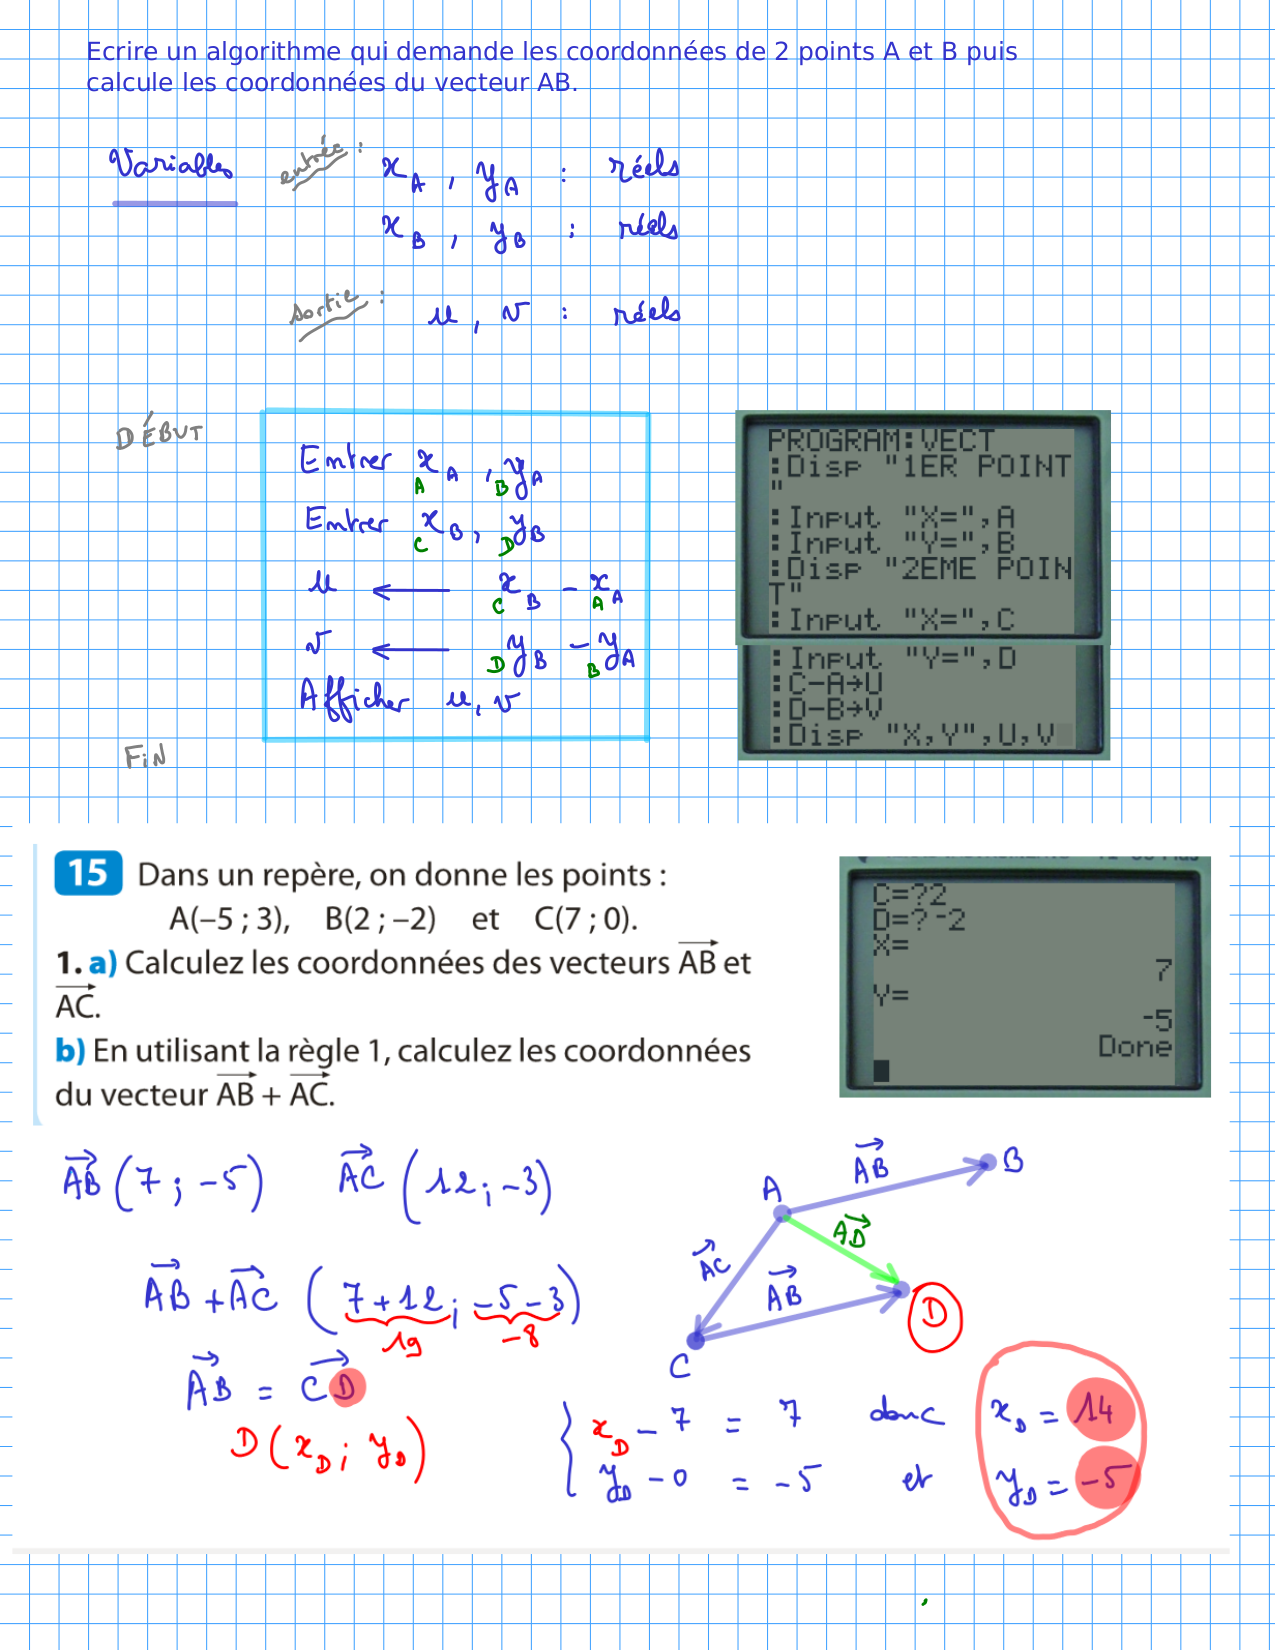 Ecrire un algorithme qui demande les coordonnées de 2 points A et B puis
calcule les coordonnées du vecteur AB.
Variables entrée : x_A , y_A : réels
x_B , y_B : réels
sortie : u , v : réels
DÉBUT
Entrer x_A , y_A
A B
Entrer x_B , y_B
C D
u ← x_B - x_A
C A
v ← y_B - y_A
D B
Afficher u, v
FiN
PROGRAM:VECT
:Disp "1ER POINT
"
:Input "X=",A
:Input "Y=",B
:Disp "2EME POIN
T"
:Input "X=",C
:Input "Y=",D
:C-A→U
:D-B→V
:Disp "X,Y",U,V
15 Dans un repère, on donne les points :
A(–5 ; 3), B(2 ; –2) et C(7 ; 0).
1. a) Calculez les coordonnées des vecteurs AB et
AC.
b) En utilisant la règle 1, calculez les coordonnées
du vecteur AB + AC.
C=?2
D=?-2
X=
7
Y=
-5
Done
AB (7 ; -5) AC (12 ; -3)
AB + AC (7+12 ; -5-3)
19 -8
AB = CD
D(x_D ; y_D)
A
AB
B
AD
AC
AB
D
C
{ x_D - 7 = 7 donc x_D = 14
y_D - 0 = -5 et y_D = -5